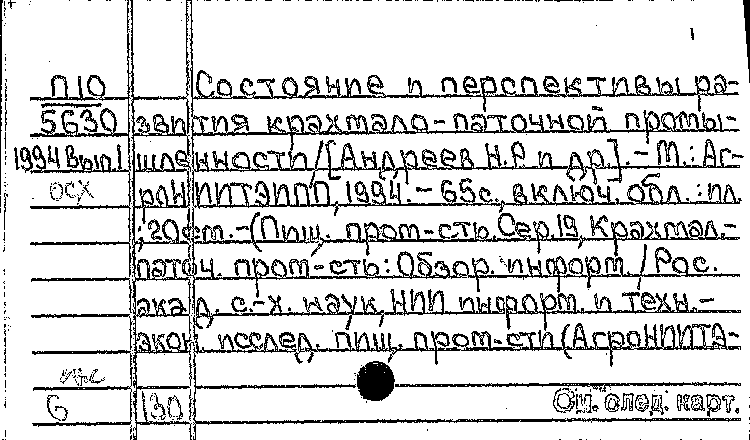 П10 Состояние и перспективы ра-
5630 звития крахмало-паточной промы-
1994 Вып.1 шленности/[Андреев Н.Р. и др.].-М.: Аг-
ОСХ роНИИТЭИПП, 1994.-65с., включ. обл.:ил.
;20см.-(Пищ. пром-сть. Сер.19, Крахмал.-
паточ. пром-сть: Обзор. информ. / Рос.
акад. с.-х. наук, НИИ информ. и техн.-
экон. исслед. пищ. пром-сти (АгроНИИТЭ-
6 130 См. след. карт.